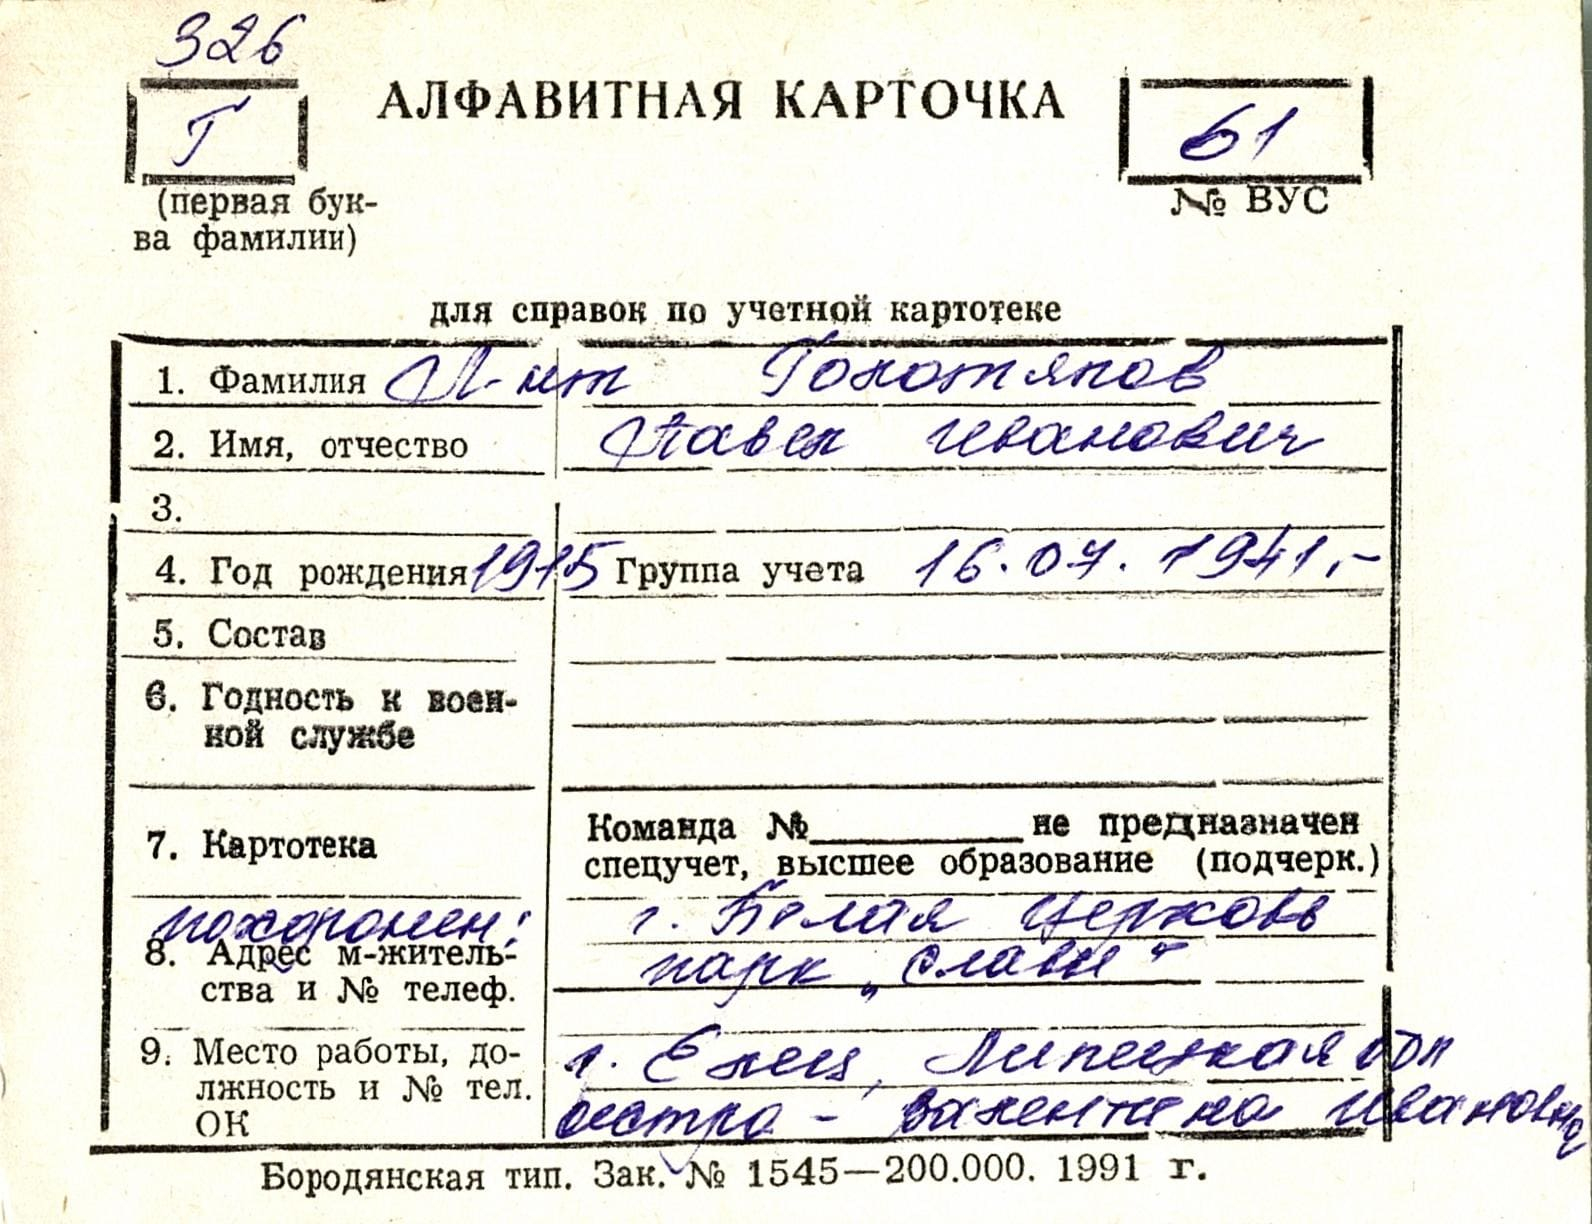 326
Г
АЛФАВИТНАЯ КАРТОЧКА
61
(первая бук-
ва фамилии)
№ ВУС
для справок по учетной картотеке
1. Фамилия Л-нт Голотяпов
2. Имя, отчество Павел Иванович
3.
4. Год рождения 1915 Группа учета 16.07.1941.-
5. Состав
6. Годность к воен-
ной службе
7. Картотека
Команда №__________не предназначен
спецучет, высшее образование (подчерк.)
похоронен: г. Белая Церковь
8. Адрес м-житель-
ства и № телеф.
парк „Славы"
9. Место работы, до-
лжность и № тел.
ОК
г. Елец, Липецкая обл
сестра - Валентина Ивановна
Бородянская тип. Зак. № 1545—200.000. 1991 г.